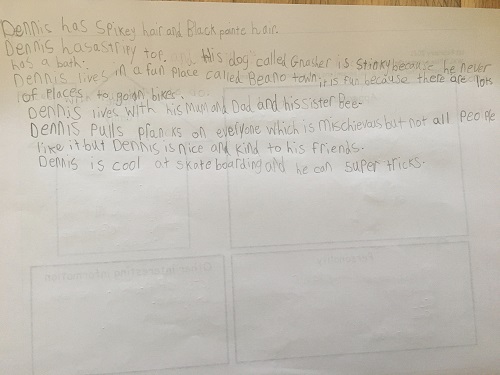 Dennis has spikey hair and Black pante hair.
Dennis has a stripy top. His dog called Gnasher is stinky because he never
has a bath.
Dennis lives in a fun place called Beano town, it is fun because there are lots
of places to go on bikes.
Dennis lives with his Mum and Dad and his sister Bee.
Dennis pulls pranks on everyone which is mischievous but not all people
like it but Dennis is nice and kind to his friends.
Dennis is cool at skateboarding and he can super tricks.
Personality
Other interesting information